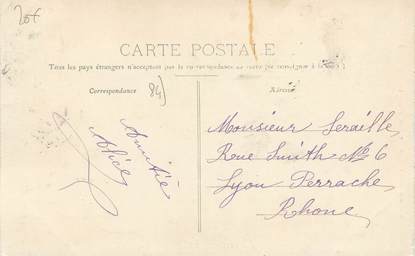 20f
CARTE POSTALE
Tous les pays étrangers n'acceptent pas la correspondance au recto (se renseigner à la
Correspondance
84)
Adresse
Amitié
Alice
Monsieur Seraille
Rue Smith No 6
Lyon Perrache
Rhone